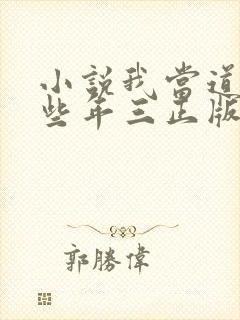 小說我當道
些年三正版
郭勝偉